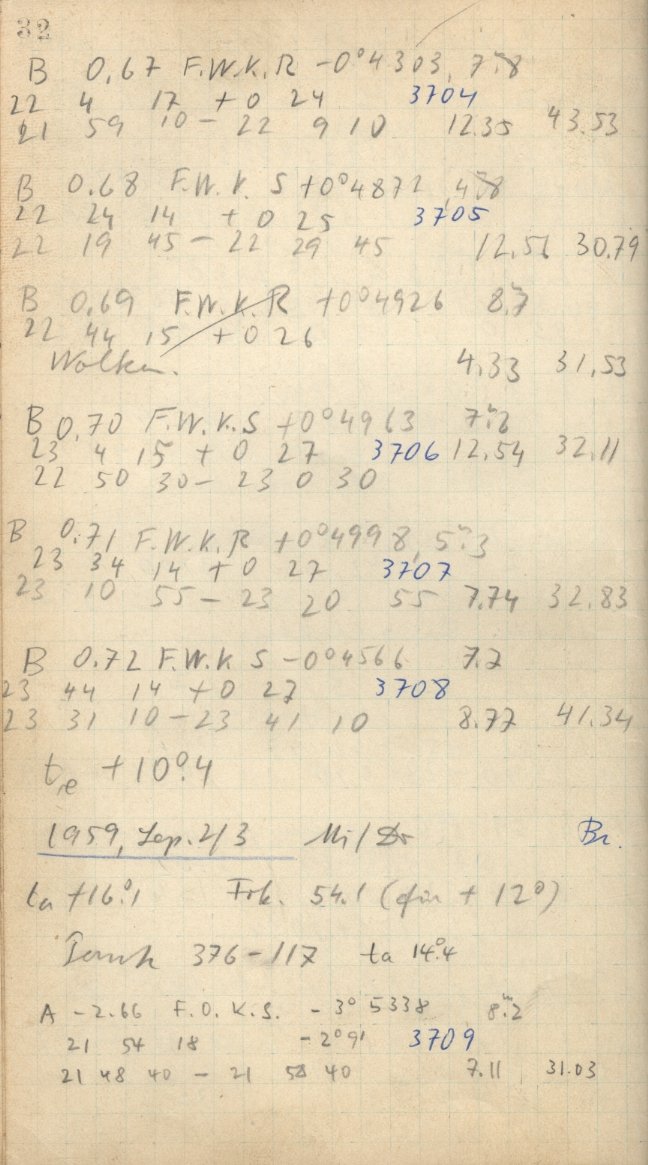 32
B 0,67 F.W.K.R -0°4303, 7ᵐ8
22 4 17 +0 24 3704
21 59 10 - 22 9 10 12.35 43.53
B 0.68 F.W.K. S +0°4872, 4ᵐ8
22 24 14 +0 25 3705
22 19 45 - 22 29 45 12.56 30.79
B 0,69 F.W.K.R +0°4926 8,7
22 44 15 +0 26
Wolken. 4.33 31,53
B 0,70 F.W.K.S +0°4963 7ᵐ2
23 4 15 +0 27 3706 12.54 32.11
22 50 30 - 23 0 30
B 0.71 F.W.K.R +0°4998, 5ᵐ3
23 34 14 +0 27 3707
23 10 55 - 23 20 55 7.74 32.83
B 0.72 F.W.K S -0°4566 7.2
23 44 14 +0 27 3708
23 31 10 - 23 41 10 8.77 41.34
te +10°.4
1959, Sep. 2/3 Mi/Do Br.
ta +16°.1 54.1 (für +12°)
376-117 ta 14°.4
A -2.66 F.O.K.S. -3°5338 8ᵐ2
21 54 18 -2°91 3709
21 48 40 - 21 58 40 7.11 31.03